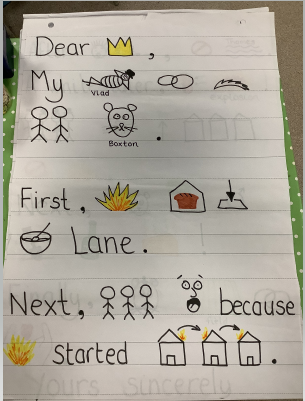 Dear ,
My
Vlad
Boxton .
First ,
Lane .
Next , because
started .
Yours sincerely